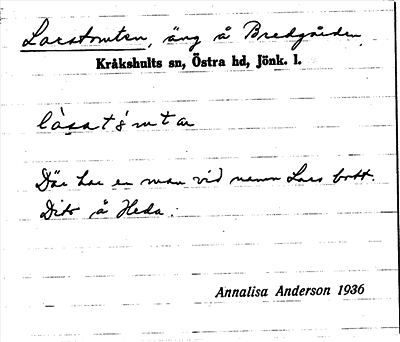 Larstomten, äng å Bredgården,
Kråkshults sn, Östra hd, Jönk. l.
Där har en man vid namn Lars bott.
Dito å Heda.
Annalisa Anderson 1936